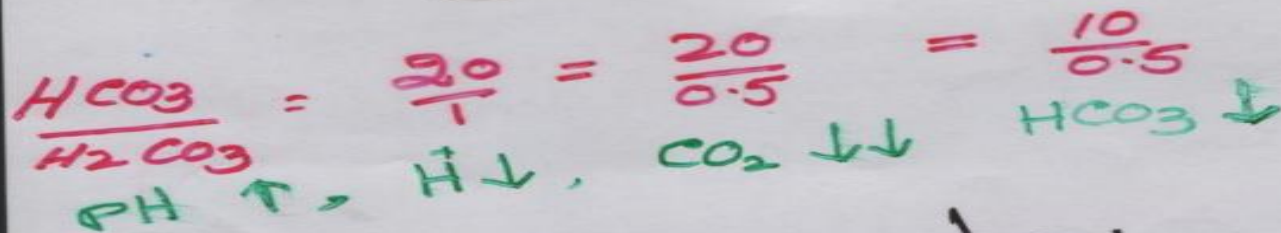 HCO3 / H2CO3 = 20 / 1 = 20 / 0.5 = 10 / 0.5
PH ↑, H⁺ ↓, CO2 ↓↓ HCO3 ↓